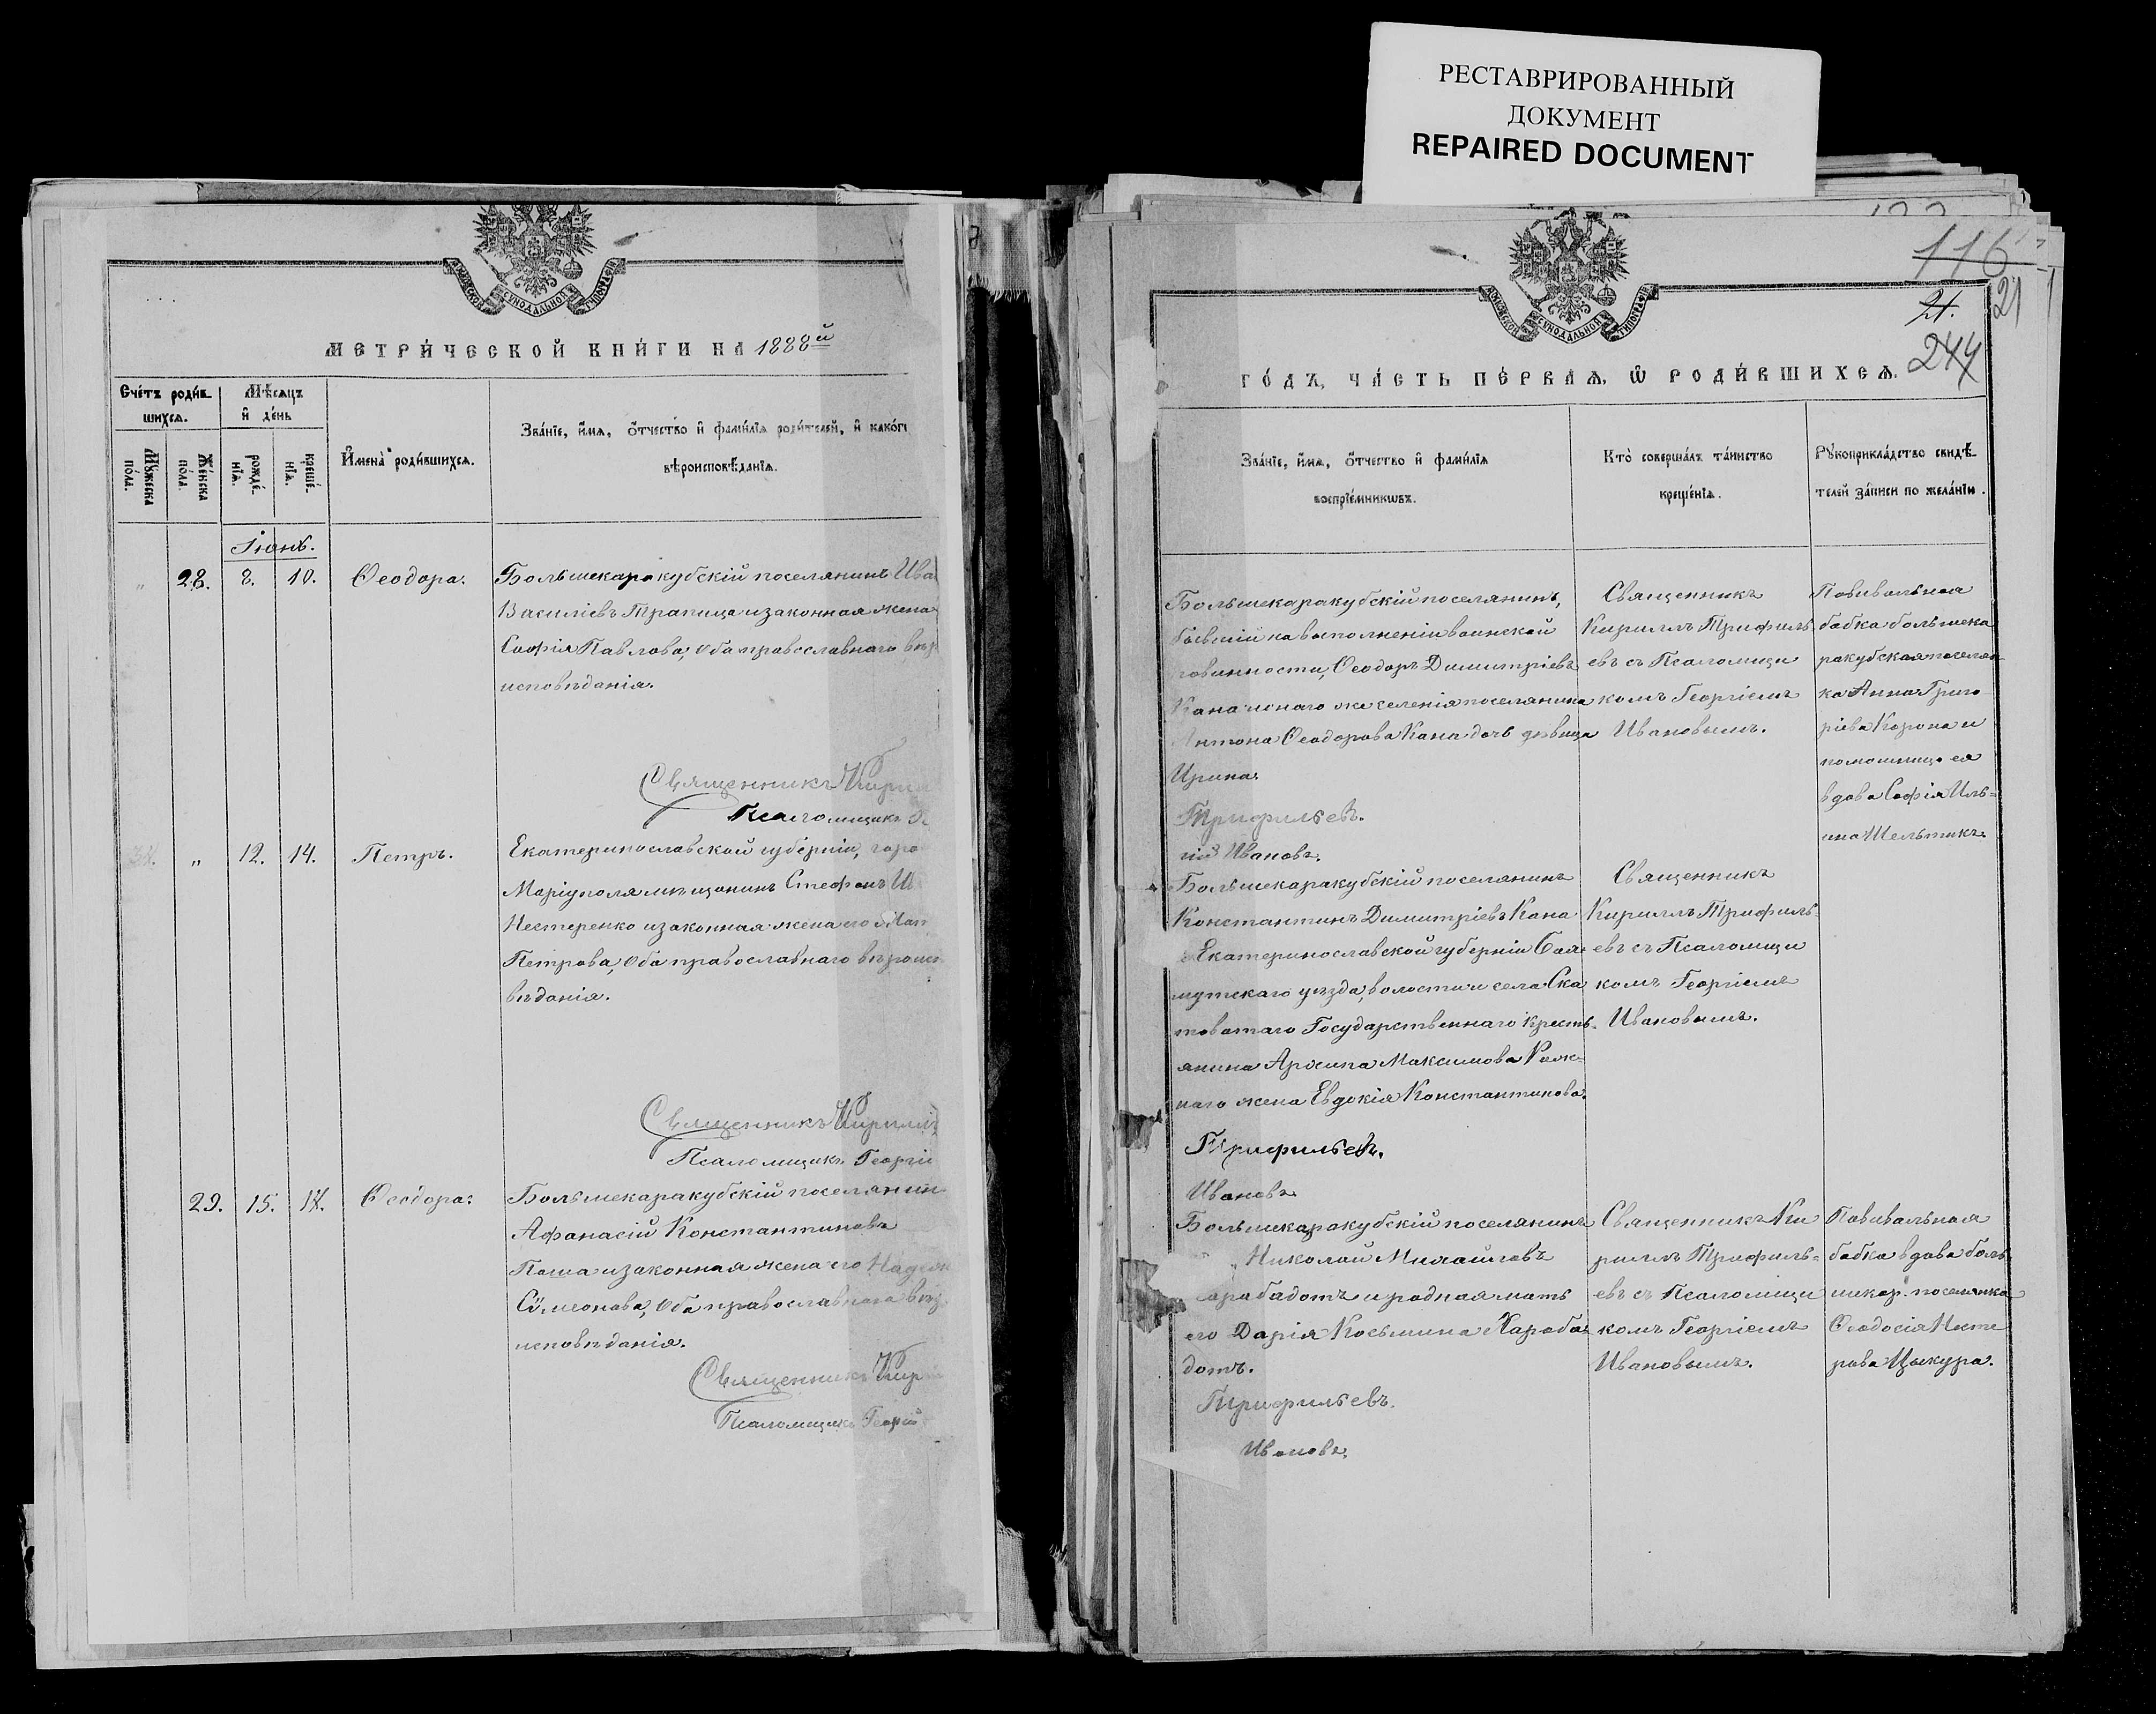 РЕСТАВРИРОВАННЫЙ
ДОКУМЕНТ
REPAIRED DOCUMENT
МЕТРИ́ЧЕСКОЙ КНИ́ГИ НА 1888й
Сче́тъ роди́в-
шихся.
Мѣ́сяцъ
и҆ де́нь
Мꙋ́жеска
по́ла.
Же́нска
по́ла.
рожде́-
нїѧ.
креще́-
нїѧ.
И҆мена̀ роди́вшихсѧ.
Зва́нїе, и҆́мѧ, ѻ҆́тчество и҆ фами́лїѧ роди́телей, и҆ како́гѡ
вѣроисповѣ́данїѧ.
Іюнь.
28. 8. 10. Ѳеодора.
Большекаракубскій поселянинъ Ива
Василіевъ Трапица и законная жена
Софія Павлова, оба православнаго вѣр
исповѣданія.
Священникъ Кирил
Псаломщикъ
„ 12. 14. Петръ.
Екатеринославской губерніи, горо
Маріуполя мѣщанинъ Стефанъ
Нестеренко и законная жена его
Петрова, оба православнаго вѣроис
вѣданія.
Священникъ Кирилл
Псаломщикъ Георгі
29. 15. 17. Ѳеодора.
Большекаракубскій поселянин
Афанасій Константиновъ
Паша и законная жена его Надеж
Сѵмеонова, оба православнаго вѣр
исповѣданія.
Священникъ Кир
Псаломщикъ Георгій
116
21
21.
244
ГО́ДЪ, ЧА́СТЬ ПЕ́РВАѦ, Ѽ РОДИ́ВШИХСѦ.
Зва́нїе, и҆́мѧ, ѻ҆́тчество и҆ фами́лїѧ
воспрїе́мникѡвъ.
Кто̀ соверша́лъ та́инство
креще́нїѧ.
Рꙋкоприкла́дство свидѣ́-
телей за́писи по жела́нїю.
Большекаракубскій поселянинъ,
бывшій на выполненіи воинской
повинности, Ѳеодоръ Димитріевъ
Кана и онаго же селенія поселянина
Антона Ѳеодорова Кана дочь дѣвица
Ирина.
Трифильевъ.
гій Ивановъ.
Священникъ
Кириллъ Трифиль-
евъ съ Псаломщи
комъ Георгіемъ
Ивановымъ.
Повивальная
бабка большека
ракубская поселян-
ка Анна Григо-
ріева Корона и
помощница ея
вдова Софія Иль-
ина Шельтикъ.
Большекаракубскій поселянинъ
Константинъ Димитріевъ Кана
Екатеринославской губерніи Бах-
мутскаго уѣзда, волости и села Ска
товатаго Государственнаго кресть-
янина Архипа Максимова
наго жена Евдокія Константинова.
Трифильевъ.
Ивановъ.
Священникъ
Кириллъ Трифиль-
евъ съ Псаломщи
комъ Георгіемъ
Ивановымъ.
Большекаракубскій поселянинъ
Николай Михайловъ
Харабадотъ и родная мать
его Дарія Косьмина Хараба-
дотъ.
Трифильевъ.
Ивановъ.
Священникъ Ки
риллъ Трифиль-
евъ съ Псаломщи
комъ Георгіемъ
Ивановымъ.
Повивальная
бабка вдова боль-
шекар. поселянка
Ѳеодосія Несте
рова Цыкура.